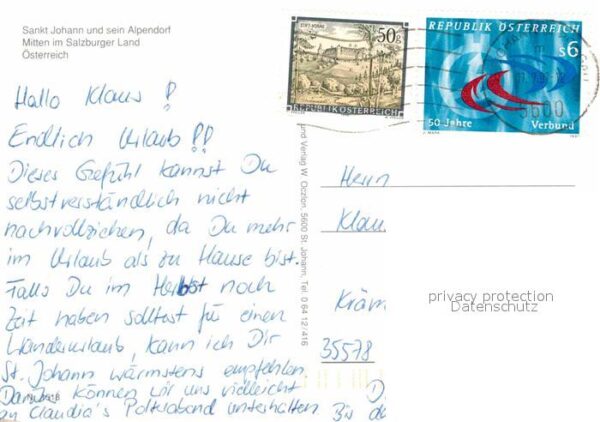 Sankt Johann und sein Alpendorf
Mitten im Salzburger Land
Österreich
Hallo Klaus!
Endlich Urlaub!!
Dieses Gefühl kannst Du
selbstverständlich nicht
nachvollziehen, da Du mehr
im Urlaub als zu Hause bist.
Falls Du im Herbst noch
Zeit haben solltest für einen
Wanderurlaub, kann ich Dir
St. Johann wärmstens empfehlen.
Darüber können wir uns vielleicht
an Claudia's Polterabend unterhalten Bis de
50g
REPUBLIK ÖSTERREICH
REPUBLIK ÖSTERREICH
s6
50 Jahre Verbund
5600
und Verlag W. Oczlon, 5600 St. Johann, Tel. 0 64 12 / 416
Herrn
Klau
Kräm
35578
D
privacy protection
Datenschutz